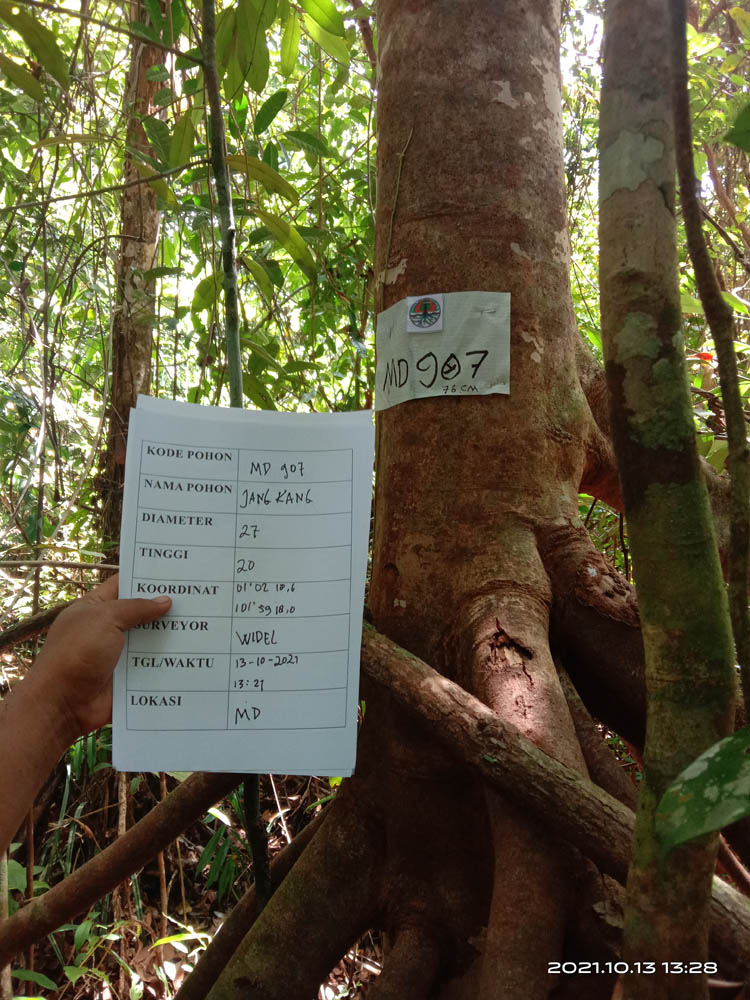 MD 907
76 CM
KODE POHON MD 907
NAMA POHON JANG KANG
DIAMETER 27
TINGGI 20
KOORDINAT 01°02 18,6
101°59 18,0
SURVEYOR WIDEL
TGL/WAKTU 13-10-2021
13:21
LOKASI MD
2021.10.13 13:28